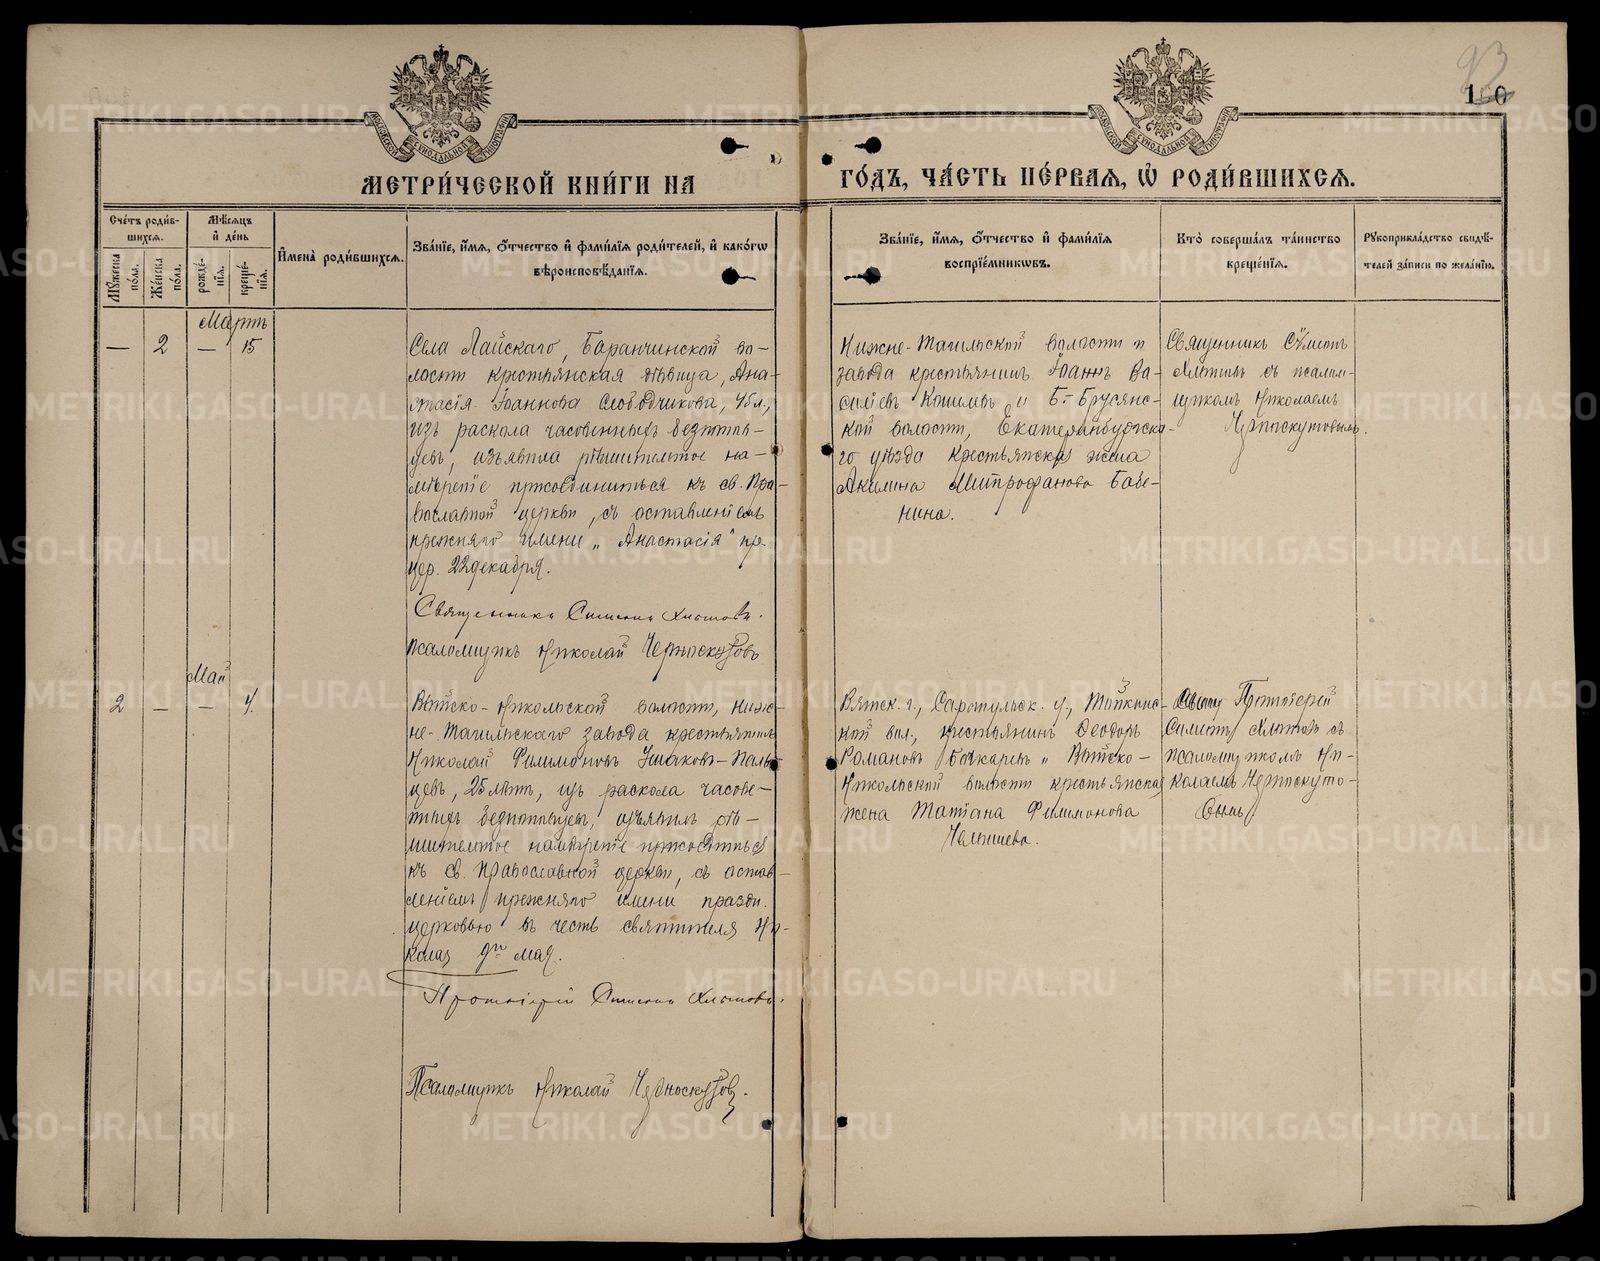 93
150
МЕТРИ́ЧЕСКОЙ КНИ́ГИ НА
ГО́ДЪ, ЧА́СТЬ ПЕ́РВАЯ, Ѽ РОДИ́ВШИХСЯ.
Сче́тъ роди́в-
шихся.
Мѣ́сяцъ
и҆ де́нь
Мꙋ́жеска
по́ла.
Же́нска
по́ла.
рожде́-
нїя.
креще́-
нїя.
И҆мена̀ роди́вшихся.
Зва́нїе, и҆́мя, ѻ҆́тчество и҆ фами́лїя роди́телей, и҆ како́гѡ
вѣроисповѣ́данїя.
Зва́нїе, и҆́мя, ѻ҆́тчество и҆ фами́лїя
воспрїе́мникѡвъ.
Кто̀ соверша́лъ та́инство
креще́нїя.
Рꙋкоприкла́дство свидѣ́-
телей за́писи по жела́нїю.
Мартъ
— 2 — 15
Села Лайскаго, Баранчинской во-
лости крестьянская дѣвица, Ана-
стасія Іоаннова Слободчикова, 45 л.,
изъ раскола часовенныхъ безпопов-
цевъ, изъявила рѣшительное на-
мѣреніе присоединиться къ св. Пра-
вославной церкви, съ оставленіемъ
прежняго имени „Анастасія" пр.
цер. 22 декабря.
Священникъ Симеонъ Хлытовъ.
Псаломщикъ Николай Черноскутовъ
Нижне-Тагильской волости и
завода крестьянинъ Іоаннъ Ва-
силіевъ Кошлевъ и Б.-Брусян-
ской волости, Екатеринбургска-
го уѣзда крестьянская жена
Акилина Митрофанова Бабе-
нина.
Священникъ Сѵмеонъ
Хлытовъ съ псалом-
щикомъ Николаемъ
Черноскутовымъ.
Май
2 — — 4.
Выйско-Никольской волости, Ниж-
не-Тагильскаго завода крестьянинъ
Николай Филимоновъ Ушаковъ-Паль-
цевъ, 25 лѣтъ, изъ раскола часове-
нныхъ безпоповцевъ, изъявилъ рѣ-
шительное намѣреніе присоединиться
къ св. Православной церкви, съ остав-
леніемъ прежняго имени праздн.
церковью въ честь святителя Ни-
колая 9го мая.
Протоіерей Симеонъ Хлытовъ.
Псаломщикъ Николай Черноскутовъ.
Вятск. г., Сарапульск. у.,
кой вол., крестьянинъ Ѳеодоръ
Романовъ Бочкаревъ и Выйско-
Никольской волости крестьянская
жена Татіана Филимонова
Протоіерей
Симеонъ Хлытовъ съ
псаломщикомъ Ни-
колаемъ Черноскуто-
вымъ